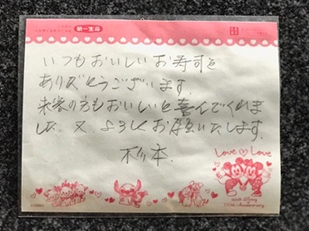 いつもおいしいお寿司を
ありがとうございます。
未来の方もおいしいと喜んでくれま
した。又よろしくお願いいたします。
杉本.
Love Love